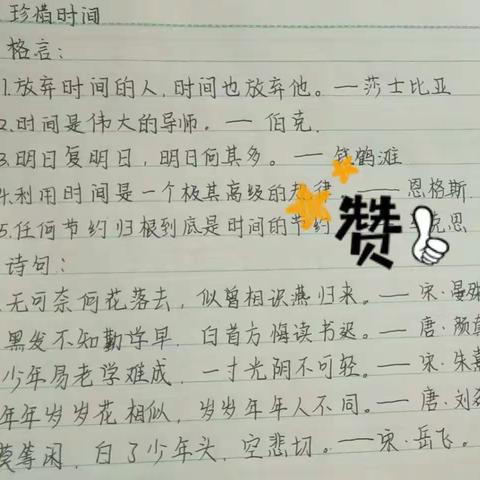 珍惜时间
格言：
1.放弃时间的人，时间也放弃他。—莎士比亚
2.时间是伟大的导师。— 伯克.
3.明日复明日，明日何其多。— 鹤滩
4.利用时间是一个极其高级的规律 — 恩格斯.
5.任何节约归根到底是时间的节约 克思
赞
诗句：
无可奈何花落去，似曾相识燕归来。— 宋·晏殊
黑发不知勤学早，白首方悔读书迟。— 唐·颜
少年易老学难成，一寸光阴不可轻。— 宋·朱熹
年年岁岁花相似，岁岁年年人不同。— 唐·刘
莫等闲，白了少年头，空悲切。—宋·岳飞。